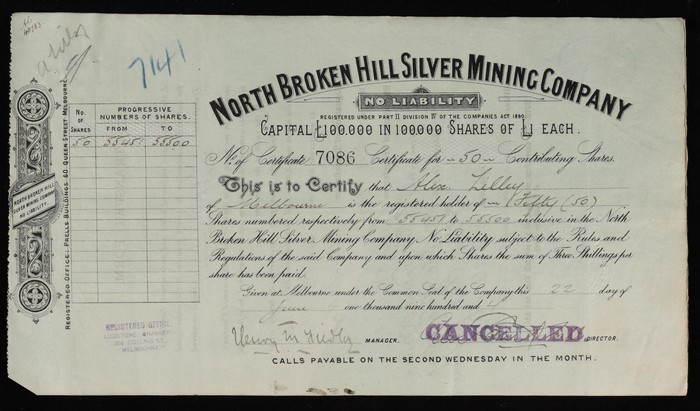 7141
NORTH BROKEN HILL SILVER MINING COMPANY
NO LIABILITY
REGISTERED UNDER PART II DIVISION IV OF THE COMPANIES ACT 1890.
CAPITAL £100.000 IN 100.000 SHARES OF £1 EACH.
No. of Certificate 7086 Certificate for 50 Contributing Shares.
This is to Certify that Alex. Lilley
of Melbourne is the registered holder of Fifty (50)
Shares numbered respectively from 55451 to 55500 inclusive in the North
Broken Hill Silver Mining Company, No Liability subject to the Rules and
Regulations of the said Company and upon which Shares the sum of Three Shillings per
share has been paid.
Given at Melbourne under the Common Seal of the Company this 22 day of
June one thousand nine hundred and
Henry M MANAGER. CANCELLED DIRECTOR.
CALLS PAYABLE ON THE SECOND WEDNESDAY IN THE MONTH.
No. OF SHARES
PROGRESSIVE NUMBERS OF SHARES.
FROM TO
50 55451 55500
NORTH BROKEN HILL
SILVER MINING COMPANY
NO LIABILITY.
REGISTERED OFFICE: PRELLS BUILDINGS, 60 QUEEN STREET MELBOURNE.
REGISTERED OFFICE,
MELBOURNE